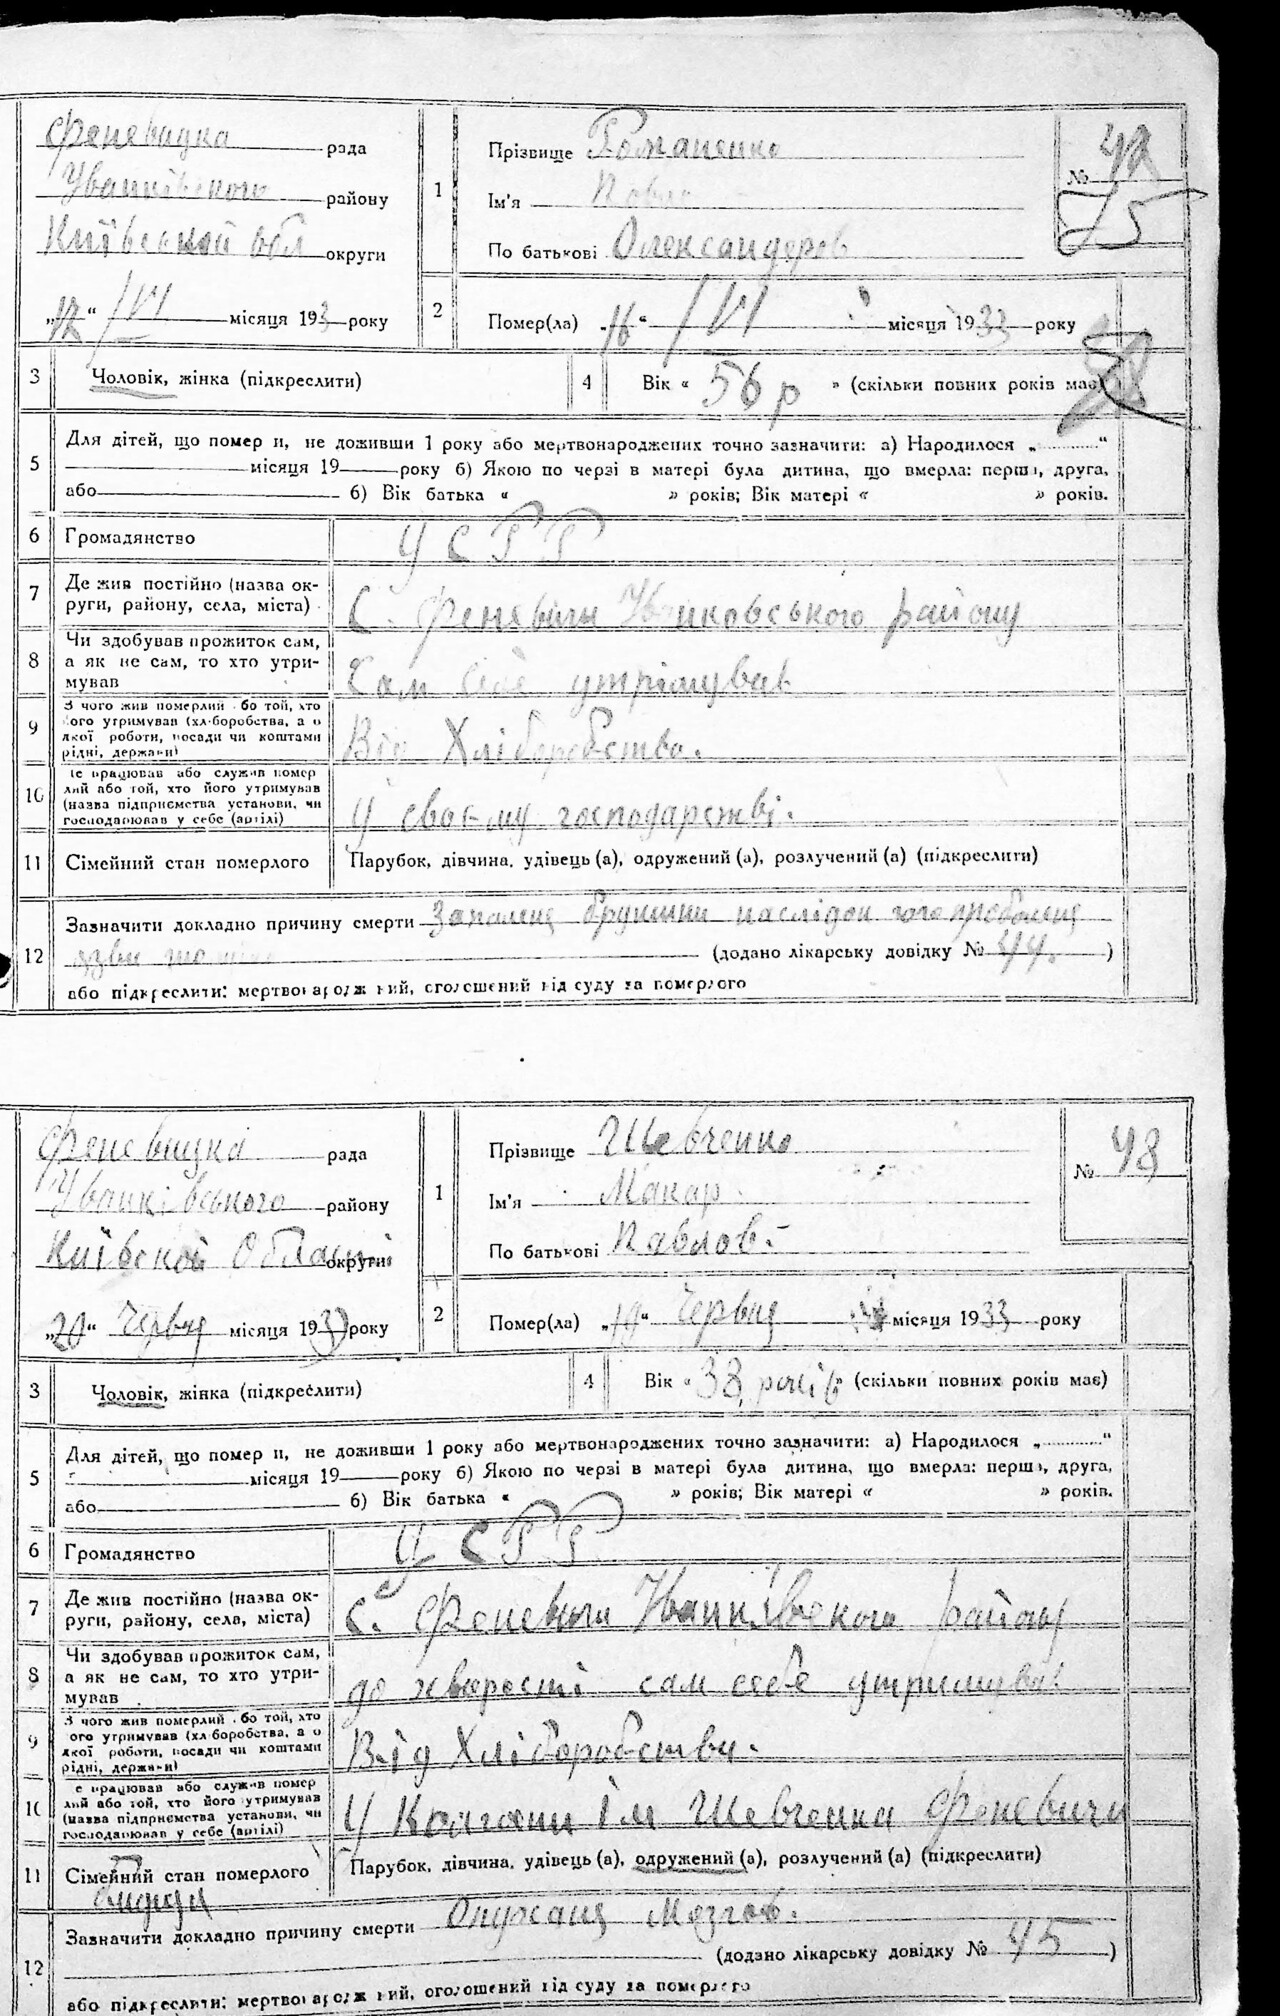 Феневицка рада
Іванківського району
Київської обл округи
„17“ /VI місяця 193 року
1
Прізвище Романенко
Ім'я Павло
По батькові Олександров
№ 42
75
2
Помер(ла) „16“ /VI місяця 1933 року
3
Чоловік, жінка (підкреслити)
4
Вік « 56 р » (скільки повних років має)
5
Для дітей, що помер и, не доживши 1 року або мертвонароджених точно зазначити: а) Народилося „ “
місяця 19 року б) Якою по черзі в матері була дитина, що вмерла: перша, друга,
або б) Вік батька « » років; Вік матері « » років.
6
Громадянство
У С Р Р
7
Де жив постійно (назва ок-
руги, району, села, міста)
С. Феневичи Іванковського району
8
Чи здобував прожиток сам,
а як не сам, то хто утри-
мував
Сам себе утрімував
9
З чого жив померлий бо той, хто
ого утримував (хл-боробства, а о
якої роботи, посади чи коштами
рідні, держави)
Від Хліборобства.
10
е працював або служив помер
лий або той, хто його утримував
(назва підприємства установи, чи
господарював у себе (артілі)
У своєму господарстві.
11
Сімейний стан померлого
Парубок, дівчина, удівець (а), одружений (а), розлучений (а) (підкреслити)
12
Зазначити докладно причину смерти Запалення брушини наслідок того
язви (додано лікарську довідку № 44. )
або підкреслити: мертвонароджений, оголошений від суду за померлого
Феневицка рада
Іванківського району
Київской Області округи
„20“ Червня місяця 1933 року
1
Прізвище Шевченко
Ім'я Макар
По батькові Павлов.
№ 48
2
Помер(ла) „19“ Червня місяця 1933 року
3
Чоловік, жінка (підкреслити)
4
Вік « 38 років » (скільки повних років має)
5
Для дітей, що помер и, не доживши 1 року або мертвонароджених точно зазначити: а) Народилося „ “
місяця 19 року б) Якою по черзі в матері була дитина, що вмерла: перша, друга,
або б) Вік батька « » років; Вік матері « » років.
6
Громадянство
У С Р Р
7
Де жив постійно (назва ок-
руги, району, села, міста)
С. Феневичи Іванківского району
8
Чи здобував прожиток сам,
а як не сам, то хто утри-
мував
до хворості сам себе утримував
9
З чого жив померлий бо той, хто
ого утримував (хл-боробства, а о
якої роботи, посади чи коштами
рідні, держави)
Від Хліборобства.
10
е працював або служив помер
лий або той, хто його утримував
(назва підприємства установи, чи
господарював у себе (артілі)
У Колгоспи Ім Шевченка Феневичи
11
Сімейний стан померлого
Парубок, дівчина, удівець (а), одружений (а), розлучений (а) (підкреслити)
12
Зазначити докладно причину смерти Опухання Мозгов.
(додано лікарську довідку № 45 )
або підкреслити: мертвонароджений, оголошений від суду за померлого